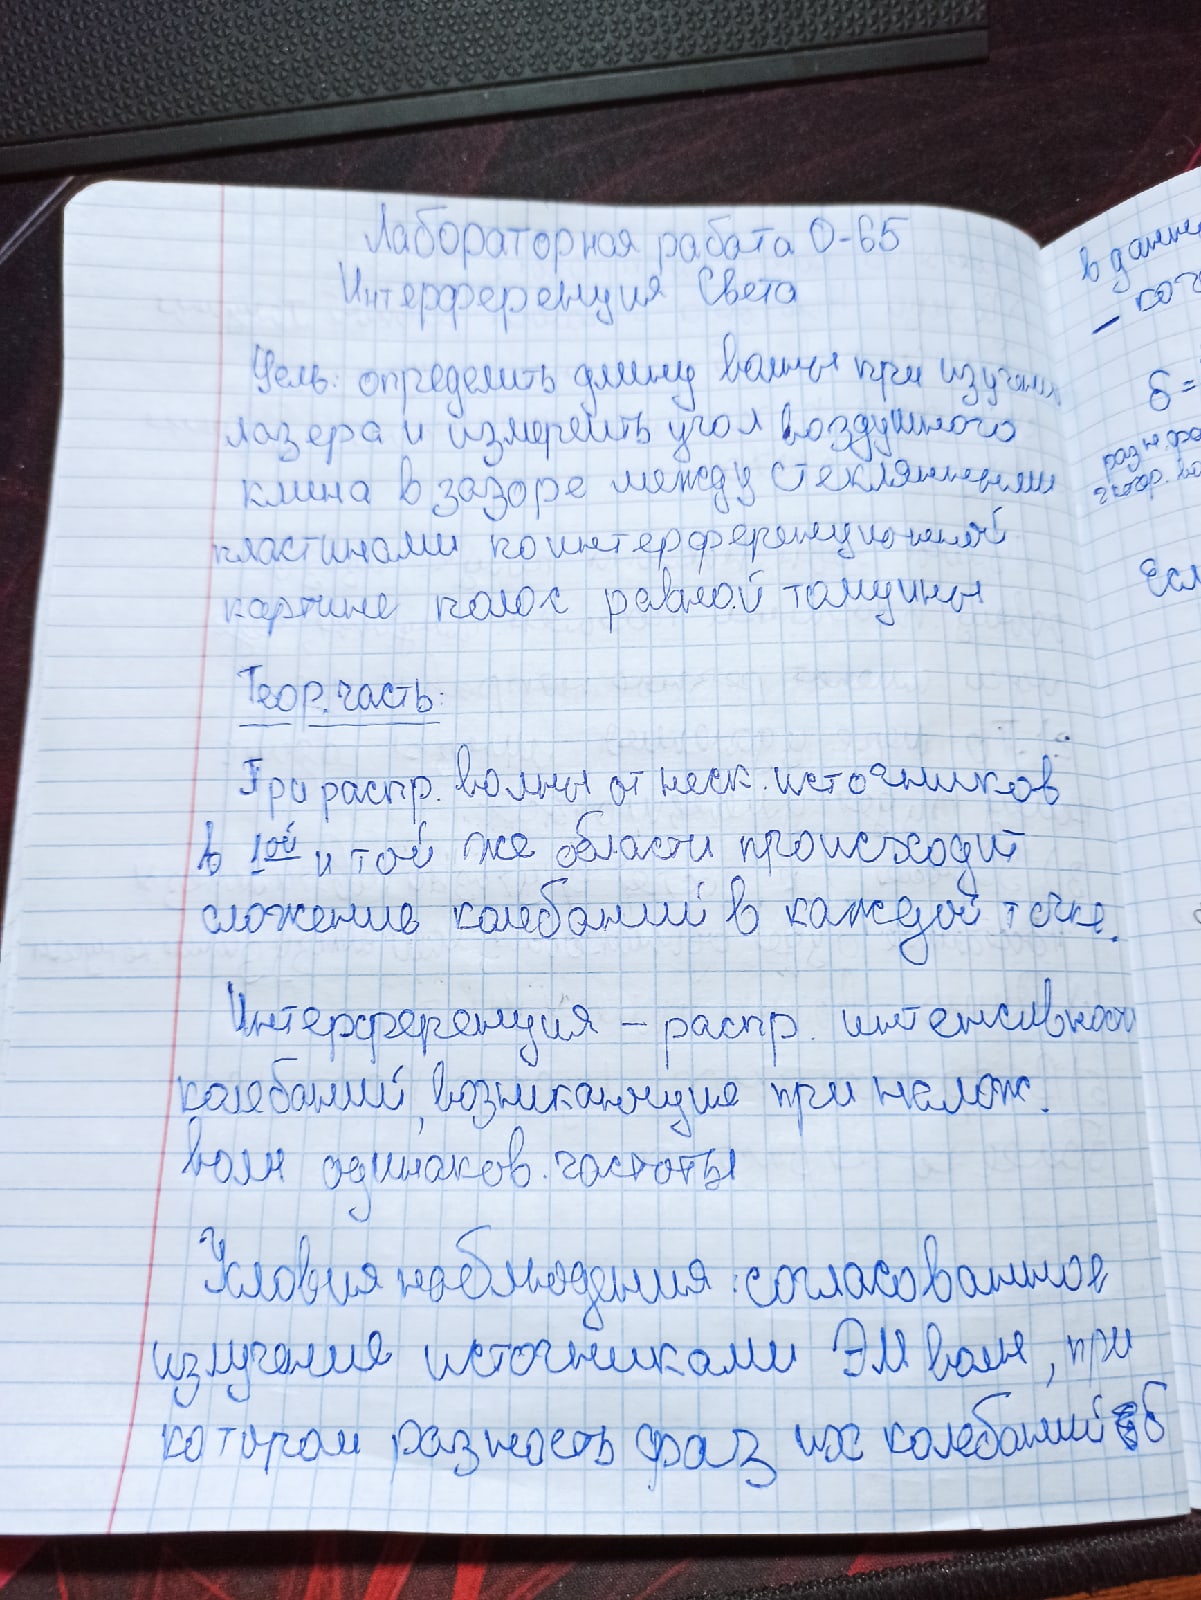 Лабораторная работа О-65
Интерференция Света
Цель: определить длину волны при изучении
лазера и измерить угол воздушного
клина в зазоре между стеклянными
пластинами по интерференционной
картине полос равной толщины
Теор. часть:
При распр. волны от неск. источников
в 1ой и той же области происходит
сложение колебаний в каждой точке.
Интерференция – распр. интенсивности
колебаний, возникающие при налож.
волн одинаков. частоты
Условия наблюдения: согласованное
излучение источниками ЭМ волн, при
котором разность фаз их колебаний δ
в данне
–
δ =
разн. фа
Есл